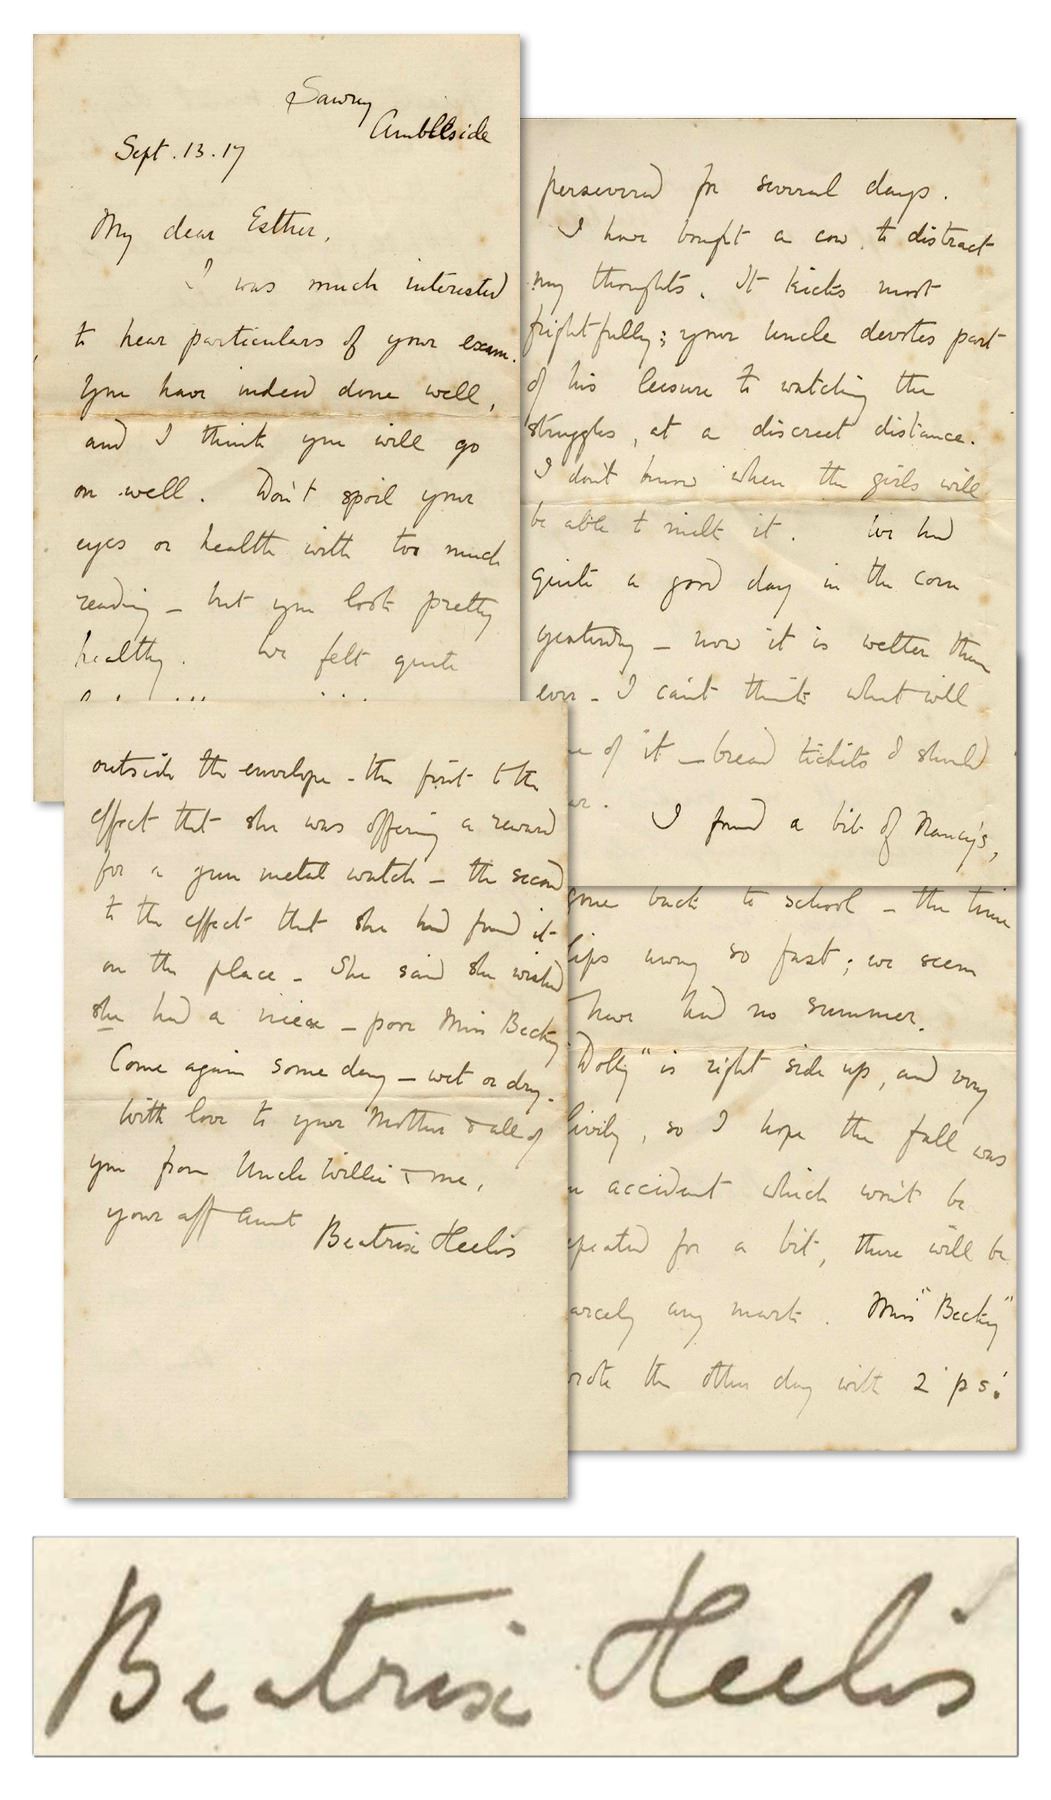 Sawrey
Ambleside
Sept. 13. 17
My dear Esther,
I was much interested
to hear particulars of your exam.
You have indeed done well,
and I think you will go
on well. Don't spoil your
eyes or health with too much
reading - but you look pretty
healthy. We felt quite
persevered for several days.
I have bought a cow, to distract
my thoughts. It kicks most
frightfully; your Uncle devotes part
of his leisure to watching the
struggles, at a discreet distance.
I don't know when the girls will
be able to milk it. We had
quite a good day in the corn
yesterday - now it is wetter than
ever - I can't think what will
of it - bread tickets I should
I found a bit of Nancy's,
gone back to school - the time
slips away so fast; we seem
have had no summer.
"Dolly" is right side up, and very
lively, so I hope the fall was
accident which won't be
repeated for a bit, there will be
scarcely any mark. Miss "Becky"
wrote the other day with 2 ps.
outside the envelope - the first to the
effect that she was offering a reward
for a gun metal watch - the second
to the effect that she had found it
on the place - She said she wished
she had a niece - poor Miss Becky
Come again some day - wet or dry -
With love to your Mother & all of
you from Uncle Willie & me,
your aff Aunt
Beatrix Heelis
Beatrix Heelis